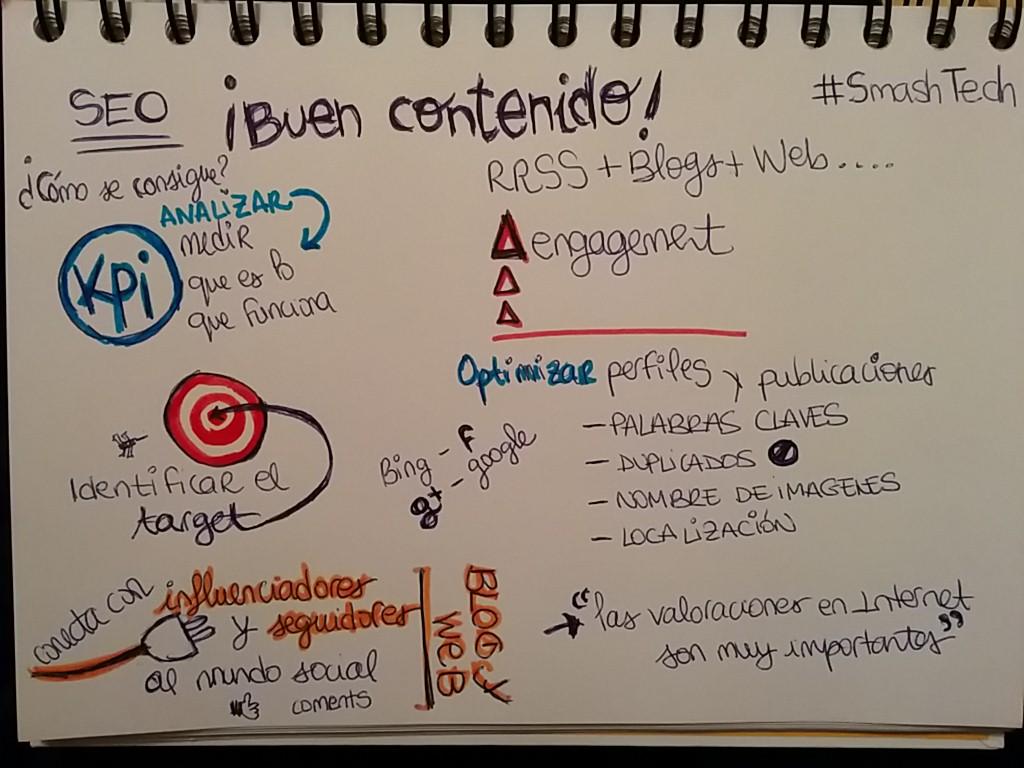 SEO ¡Buen contenido!
#SmashTech
¿Cómo se consigue?
ANALIZAR
medir
que es lo
que funciona
KPi
RRSS + Blogs + Web....
engagement
Optimizar perfiles y publicaciones
- PALABRAS CLAVES
- DUPLICADOS
- NOMBRE DE IMAGENES
- LOCALIZACIÓN
Bing - F
g+ - google
Identificar el
target
conecta con influenciadores
y seguidores
al mundo social
coments
BLOG y
WEB
"las valoraciones en Internet
son muy importantes"